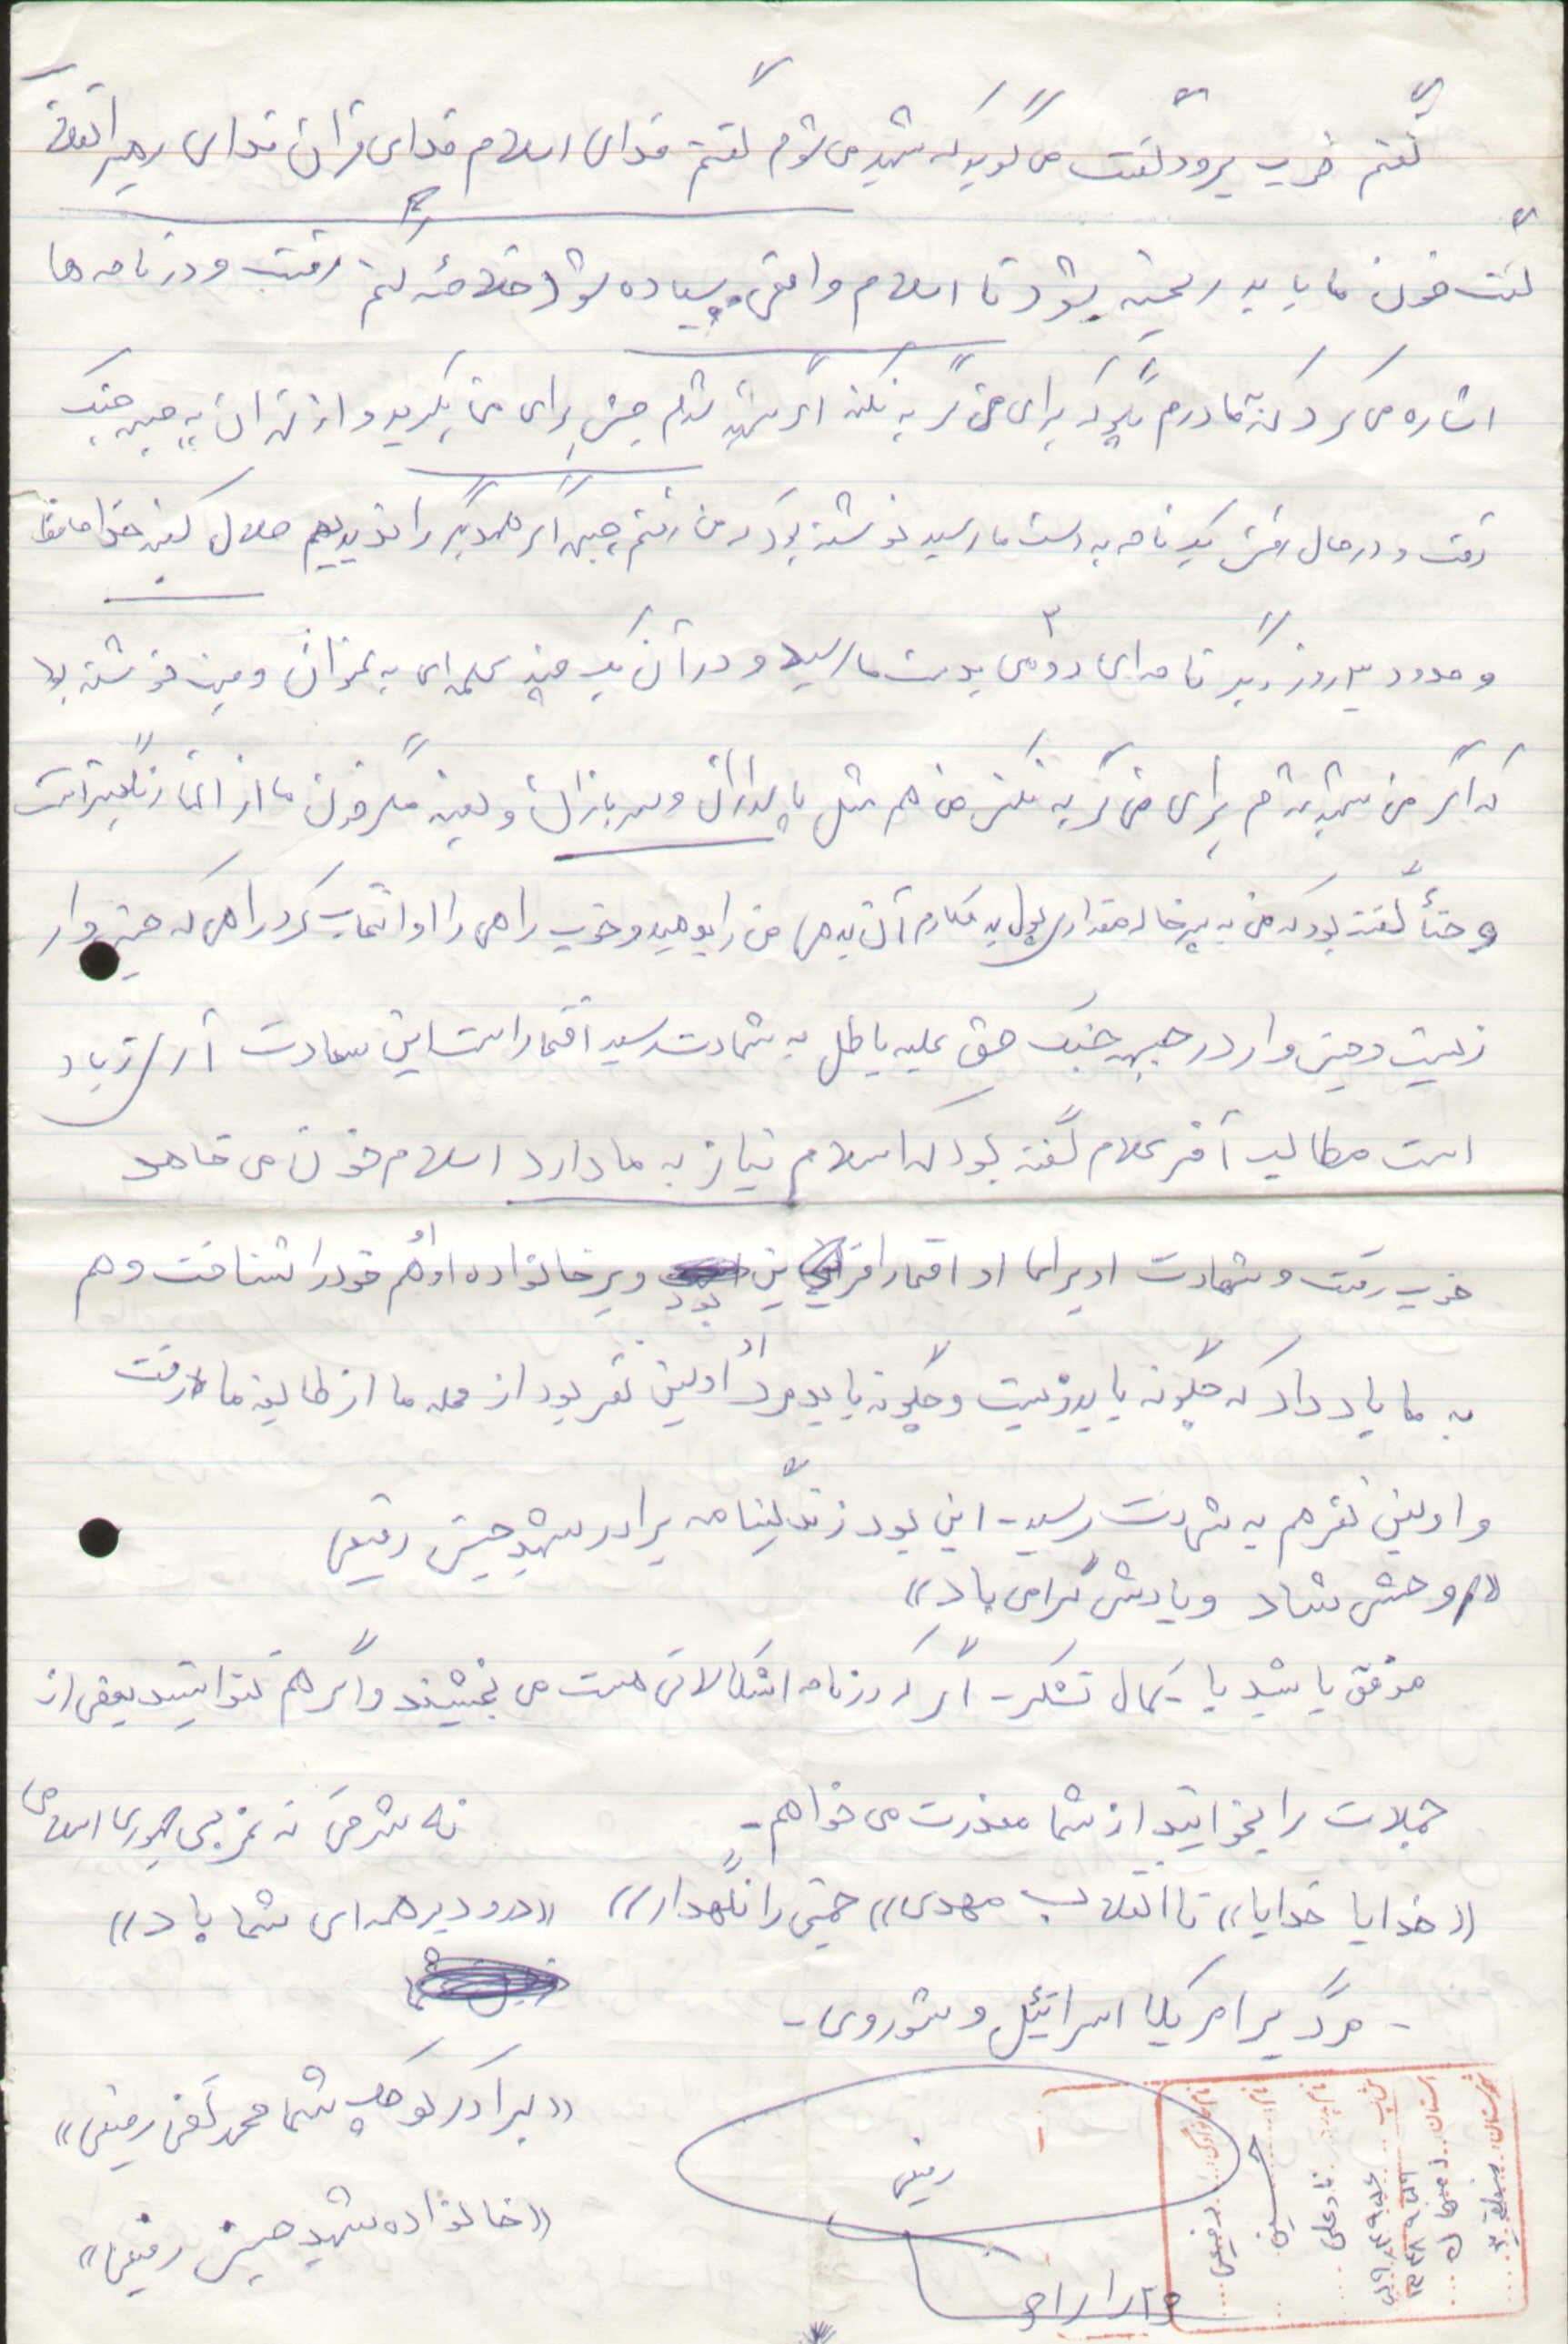 گفتم خوب برود گفت می گوید که شهید می شوم گفتم فدای اسلام فدای قرآن فدای رهبر انقلاب
گفت خون ما باید ریخته بشود تا اسلام واقعی پیاده شود خلاصه کنم رفت و در نامه ها
اشاره می کرد که مادرم بگوید برای من گریه نکند اگر شهید شدم جشن برای من بگیرید و از تهران به جبهه جنگ
رفت و در حال رفتن یک نامه به دست ما رسید نوشته بود که من رفتم جبهه اگر همدیگر را ندیدیم حلال کنید خداحافظ
و حدود ۳ روز دیگر نامه ای دومی بدست ما رسید و در آن یک چند کلمه ای به عنوان وصیت نوشته بود
که اگر من شهید شدم برای من گریه نکنید من هم مثل پاسداران و سربازان و بعد مگر خون ما از آنها رنگینتر است
و حتاً گفته بود که من به پسرخاله مقداری پول بدهکارم آن بدهی من را بدهید و خوب راهی را او انتخاب کرد راهی که حسین وار
زیست و حسین وار در جبهه جنگ حق علیه باطل به شهادت رسید افتخار است این سعادت آری زیاد
است مطالب آخر کلام گفته بود که اسلام نیاز به ما دارد اسلام خون می خاهد
خوب رفت و شهادت او برای ما او افتخار آفرین بود و بر خانواده او او هم خود را شناخت و هم
به ما یاد داد که چگونه باید زیست و چگونه باید مرد او اولین نفر بود از محله ما از طایفه ما رفت
و اولین نفر هم به شهدت رسید - این بود زندگینامه برادر شهید حسین رفیعی
«روحش شاد و یادش گرامی باد»
موفق باشید با کمال تشکر - اگر که در نامه اشکالاتی هست می بخشیند و اگر هم نتوانستید بعضی از
جملات را بخوانید از شما معذرت می خواهم -
نه شرقی نه غربی جمهوری اسلامی
«خدایا خدایا» تا انقلاب مهدی» خمینی را نگهدار»
«درود بر همه ای شما باد»
- مرگ بر امریکا اسرائیل و شوروی -
«برادر کوچک شما محمد تقی رفیعی»
«خانواده شهید حسین رفیعی»
رفیعی
نام خانوادگی: رفیعی
نام: حسین
نام پدر: نادعلی
استان: اصفهان
شهرستان: منطقه ۳